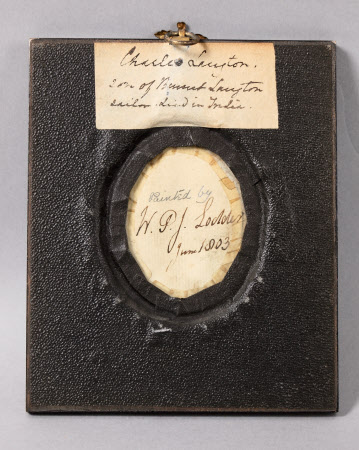 Charles Langton.
son of Bennet Langton
sailor died in India.
Painted by
W. P. J. Lodder
June 1803